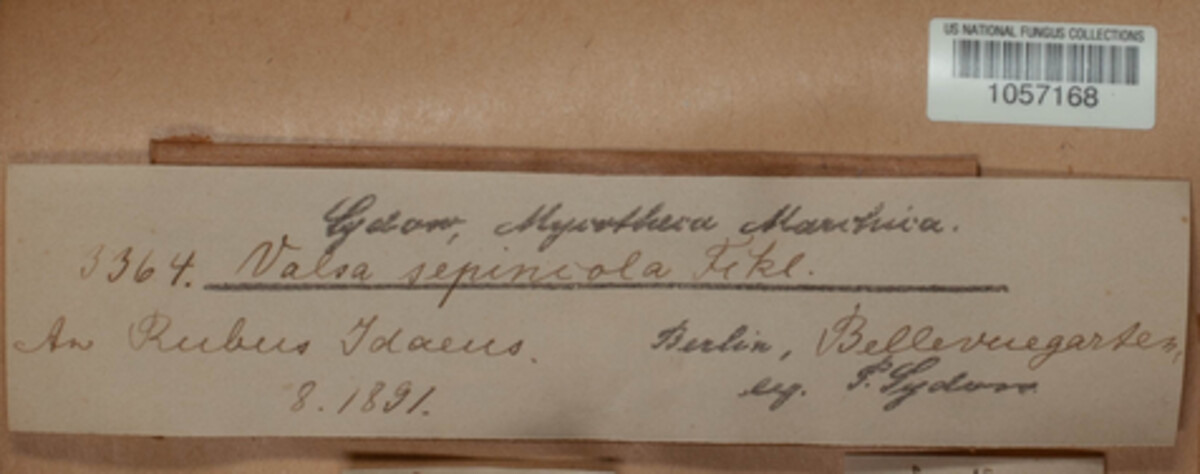 US NATIONAL FUNGUS COLLECTIONS
1057168
Sydow, Mycotheca Marchica.
3364. Valsa sepincola Fckl.
An Rubus Idaeus. Berlin, Bellevuegarten,
8. 1891. leg. P. Sydow